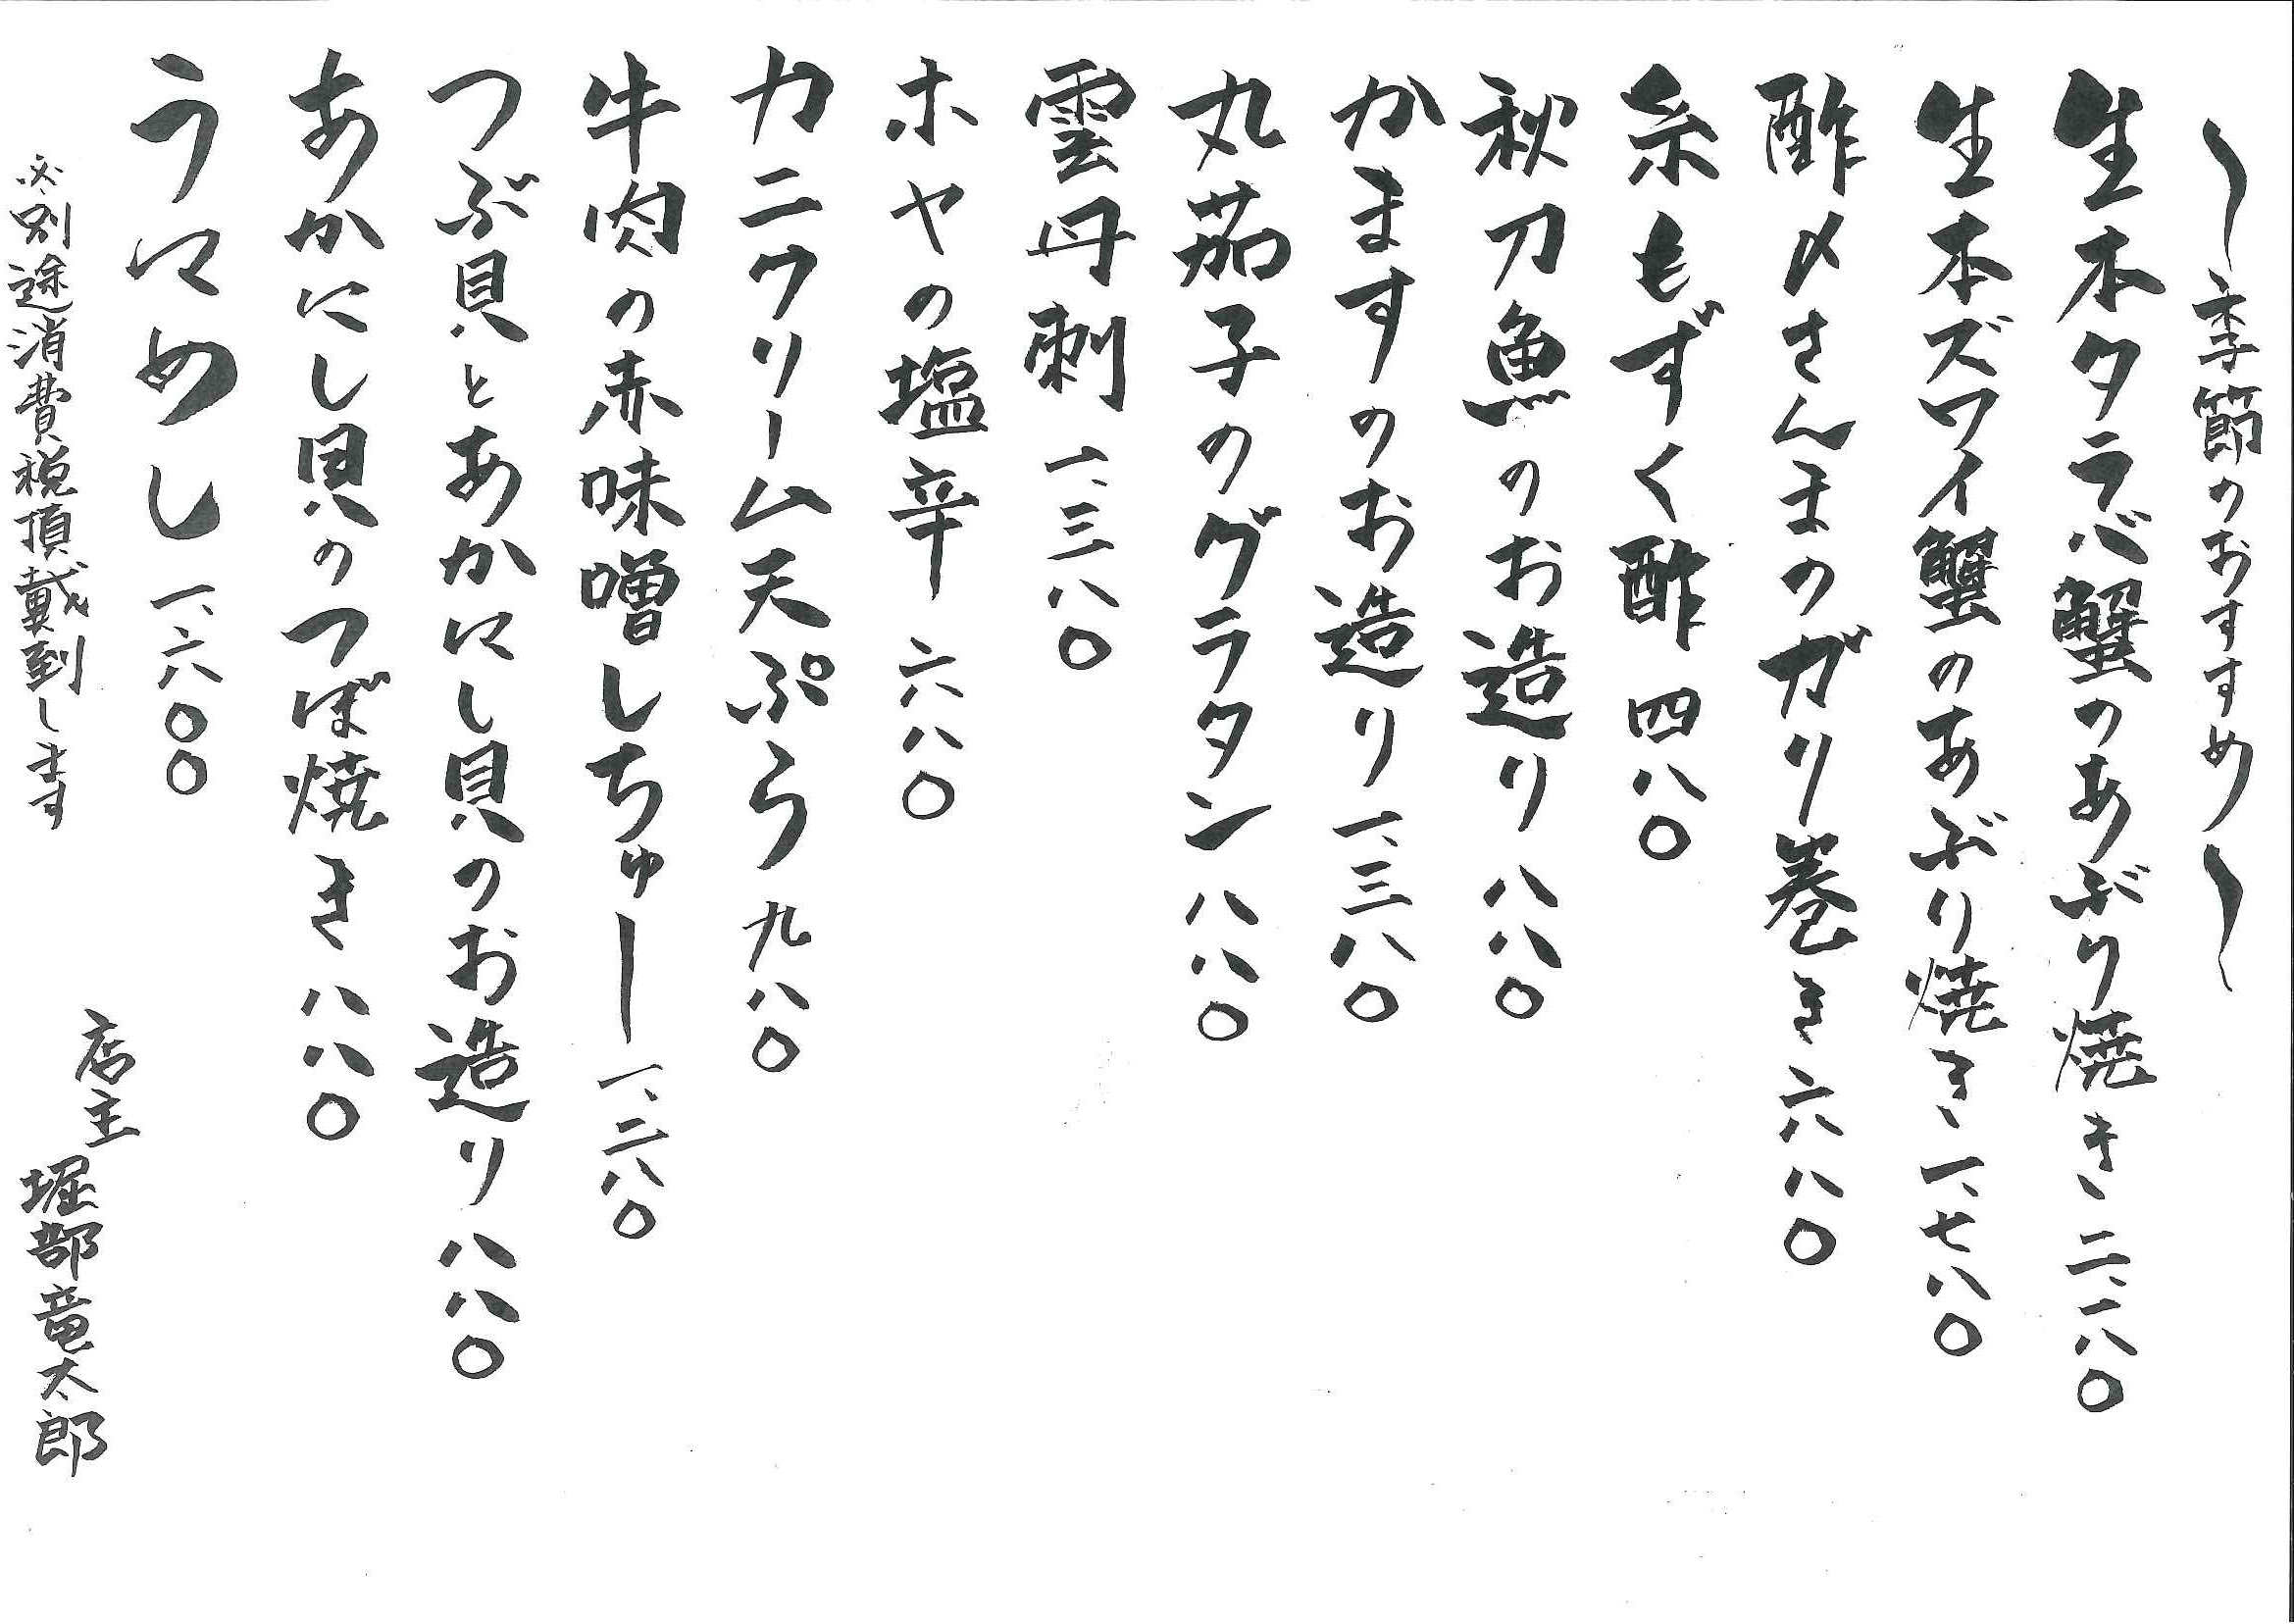 ～季節のおすすめ～
生本タラバ蟹のあぶり焼き 二、一八〇
生本ズワイ蟹のあぶり焼き 一、七八〇
酢〆さんまのガリ巻き 六八〇
糸もずく酢 四八〇
秋刀魚のお造り 八八〇
かますのお造り 一、三八〇
丸茄子のグラタン 八八〇
雲丹刺 一、三八〇
ホヤの塩辛 六八〇
カニクリーム天ぷら 九八〇
牛肉の赤味噌しちゅー 一、二八〇
つぶ貝とあかにし貝のお造り 八八〇
あかにし貝のつぼ焼き 八八〇
うにめし 一、六〇〇
※別途消費税頂戴致します
店主 堀部竜太郎